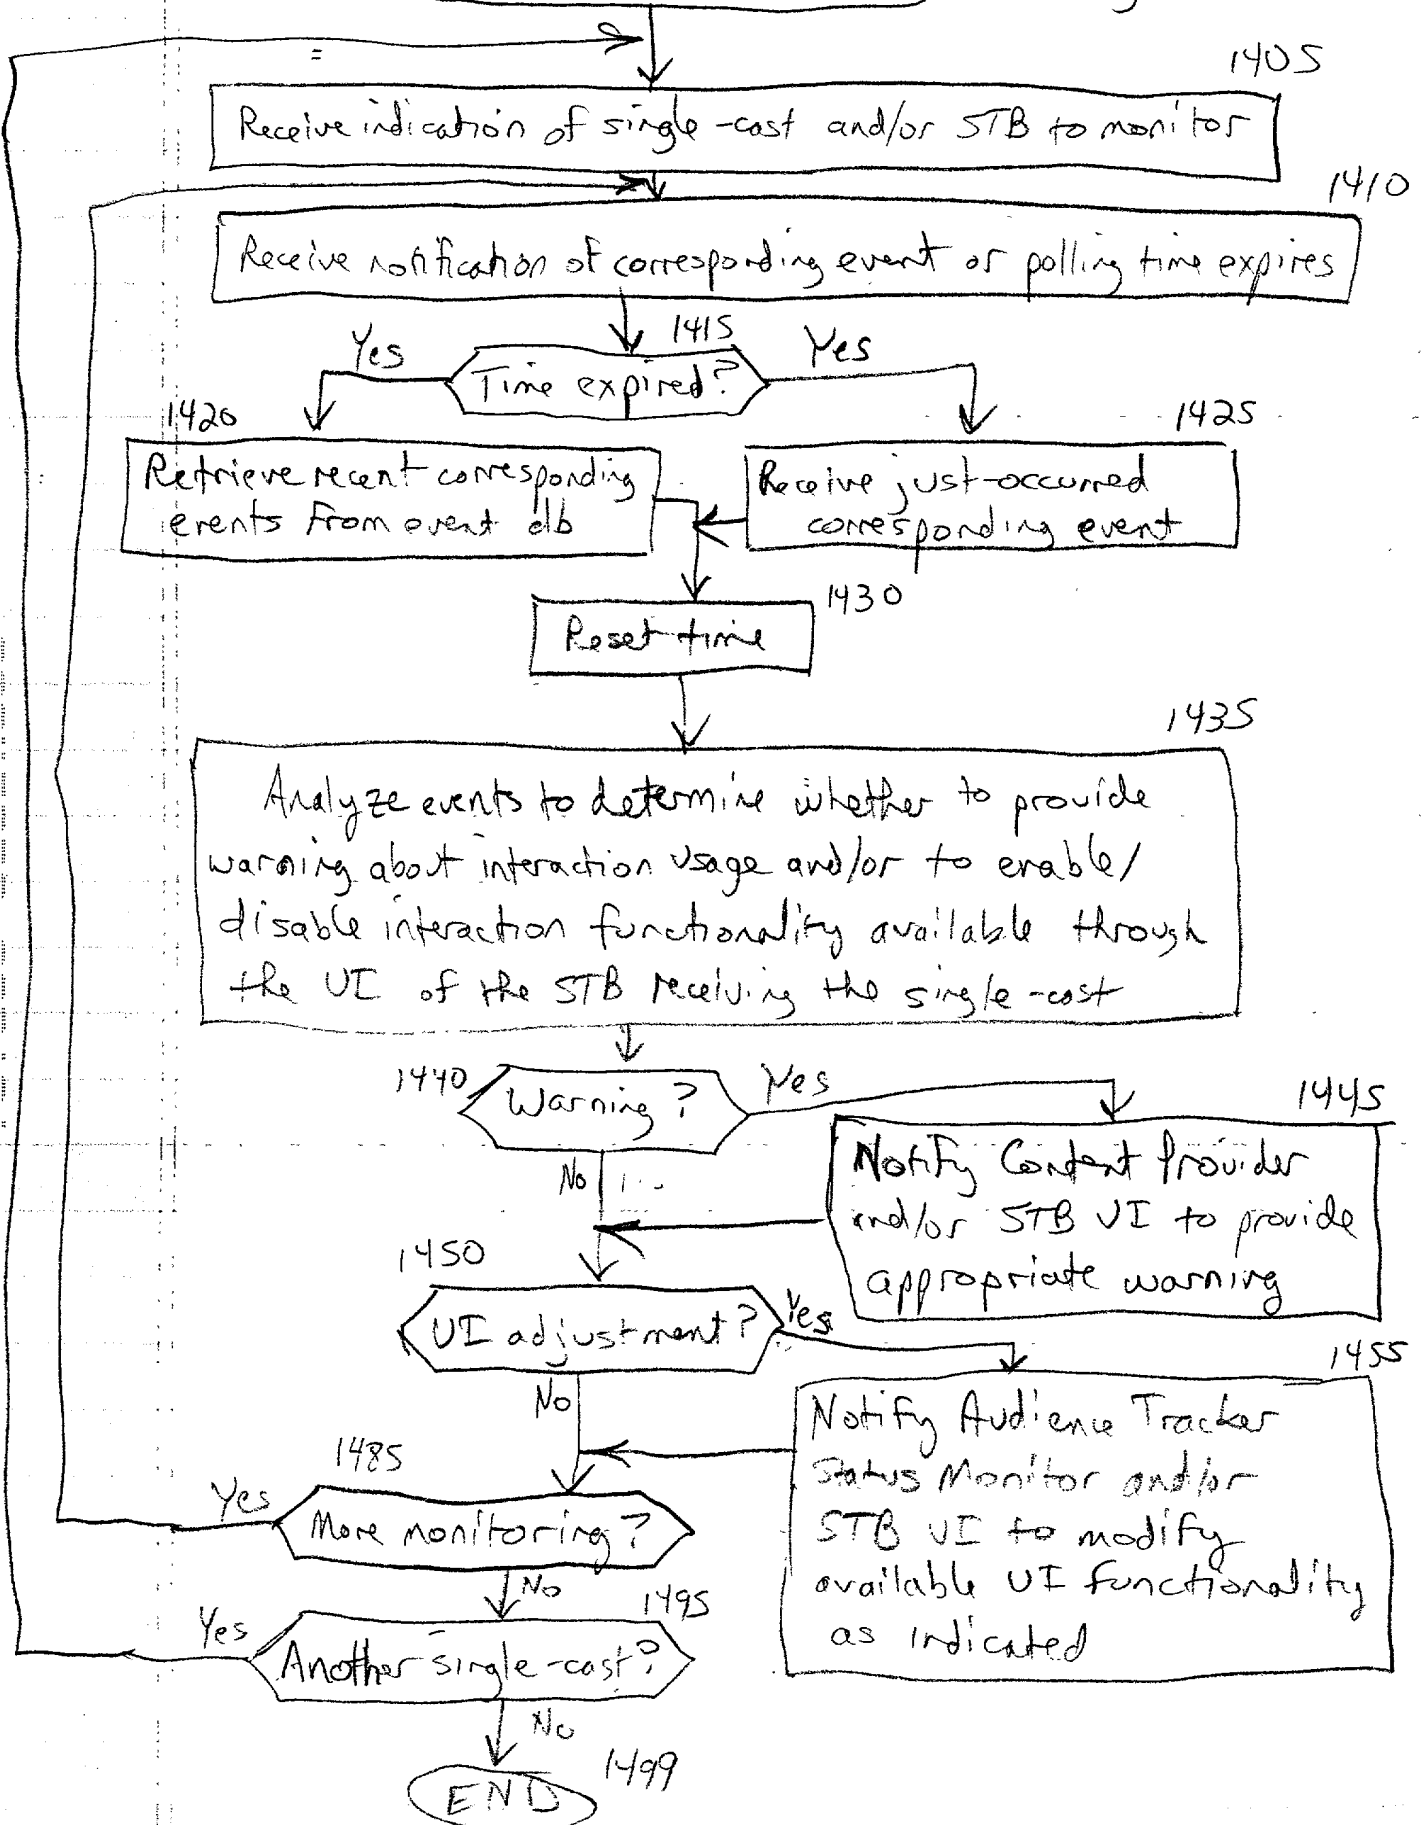 1405
Receive indication of single-cast and/or STB to monitor
1410
Receive notification of corresponding event or polling time expires
1415
Yes
Time expired?
Yes
1420
1425
Retrieve recent corresponding
events from event db
Receive just-occurred
corresponding event
1430
Reset time
1435
Analyze events to determine whether to provide
warning about interaction usage and/or to enable/
disable interaction functionality available through
the UI of the STB receiving the single-cast
1440
Warning?
Yes
1445
No
Notify Content Provider
and/or STB UI to provide
appropriate warning
1450
UI adjustment?
Yes
1455
No
Notify Audience Tracker
Status Monitor and/or
STB UI to modify
available UI functionality
as indicated
1485
Yes
More monitoring?
No
1495
Yes
Another single-cast?
No
1499
END